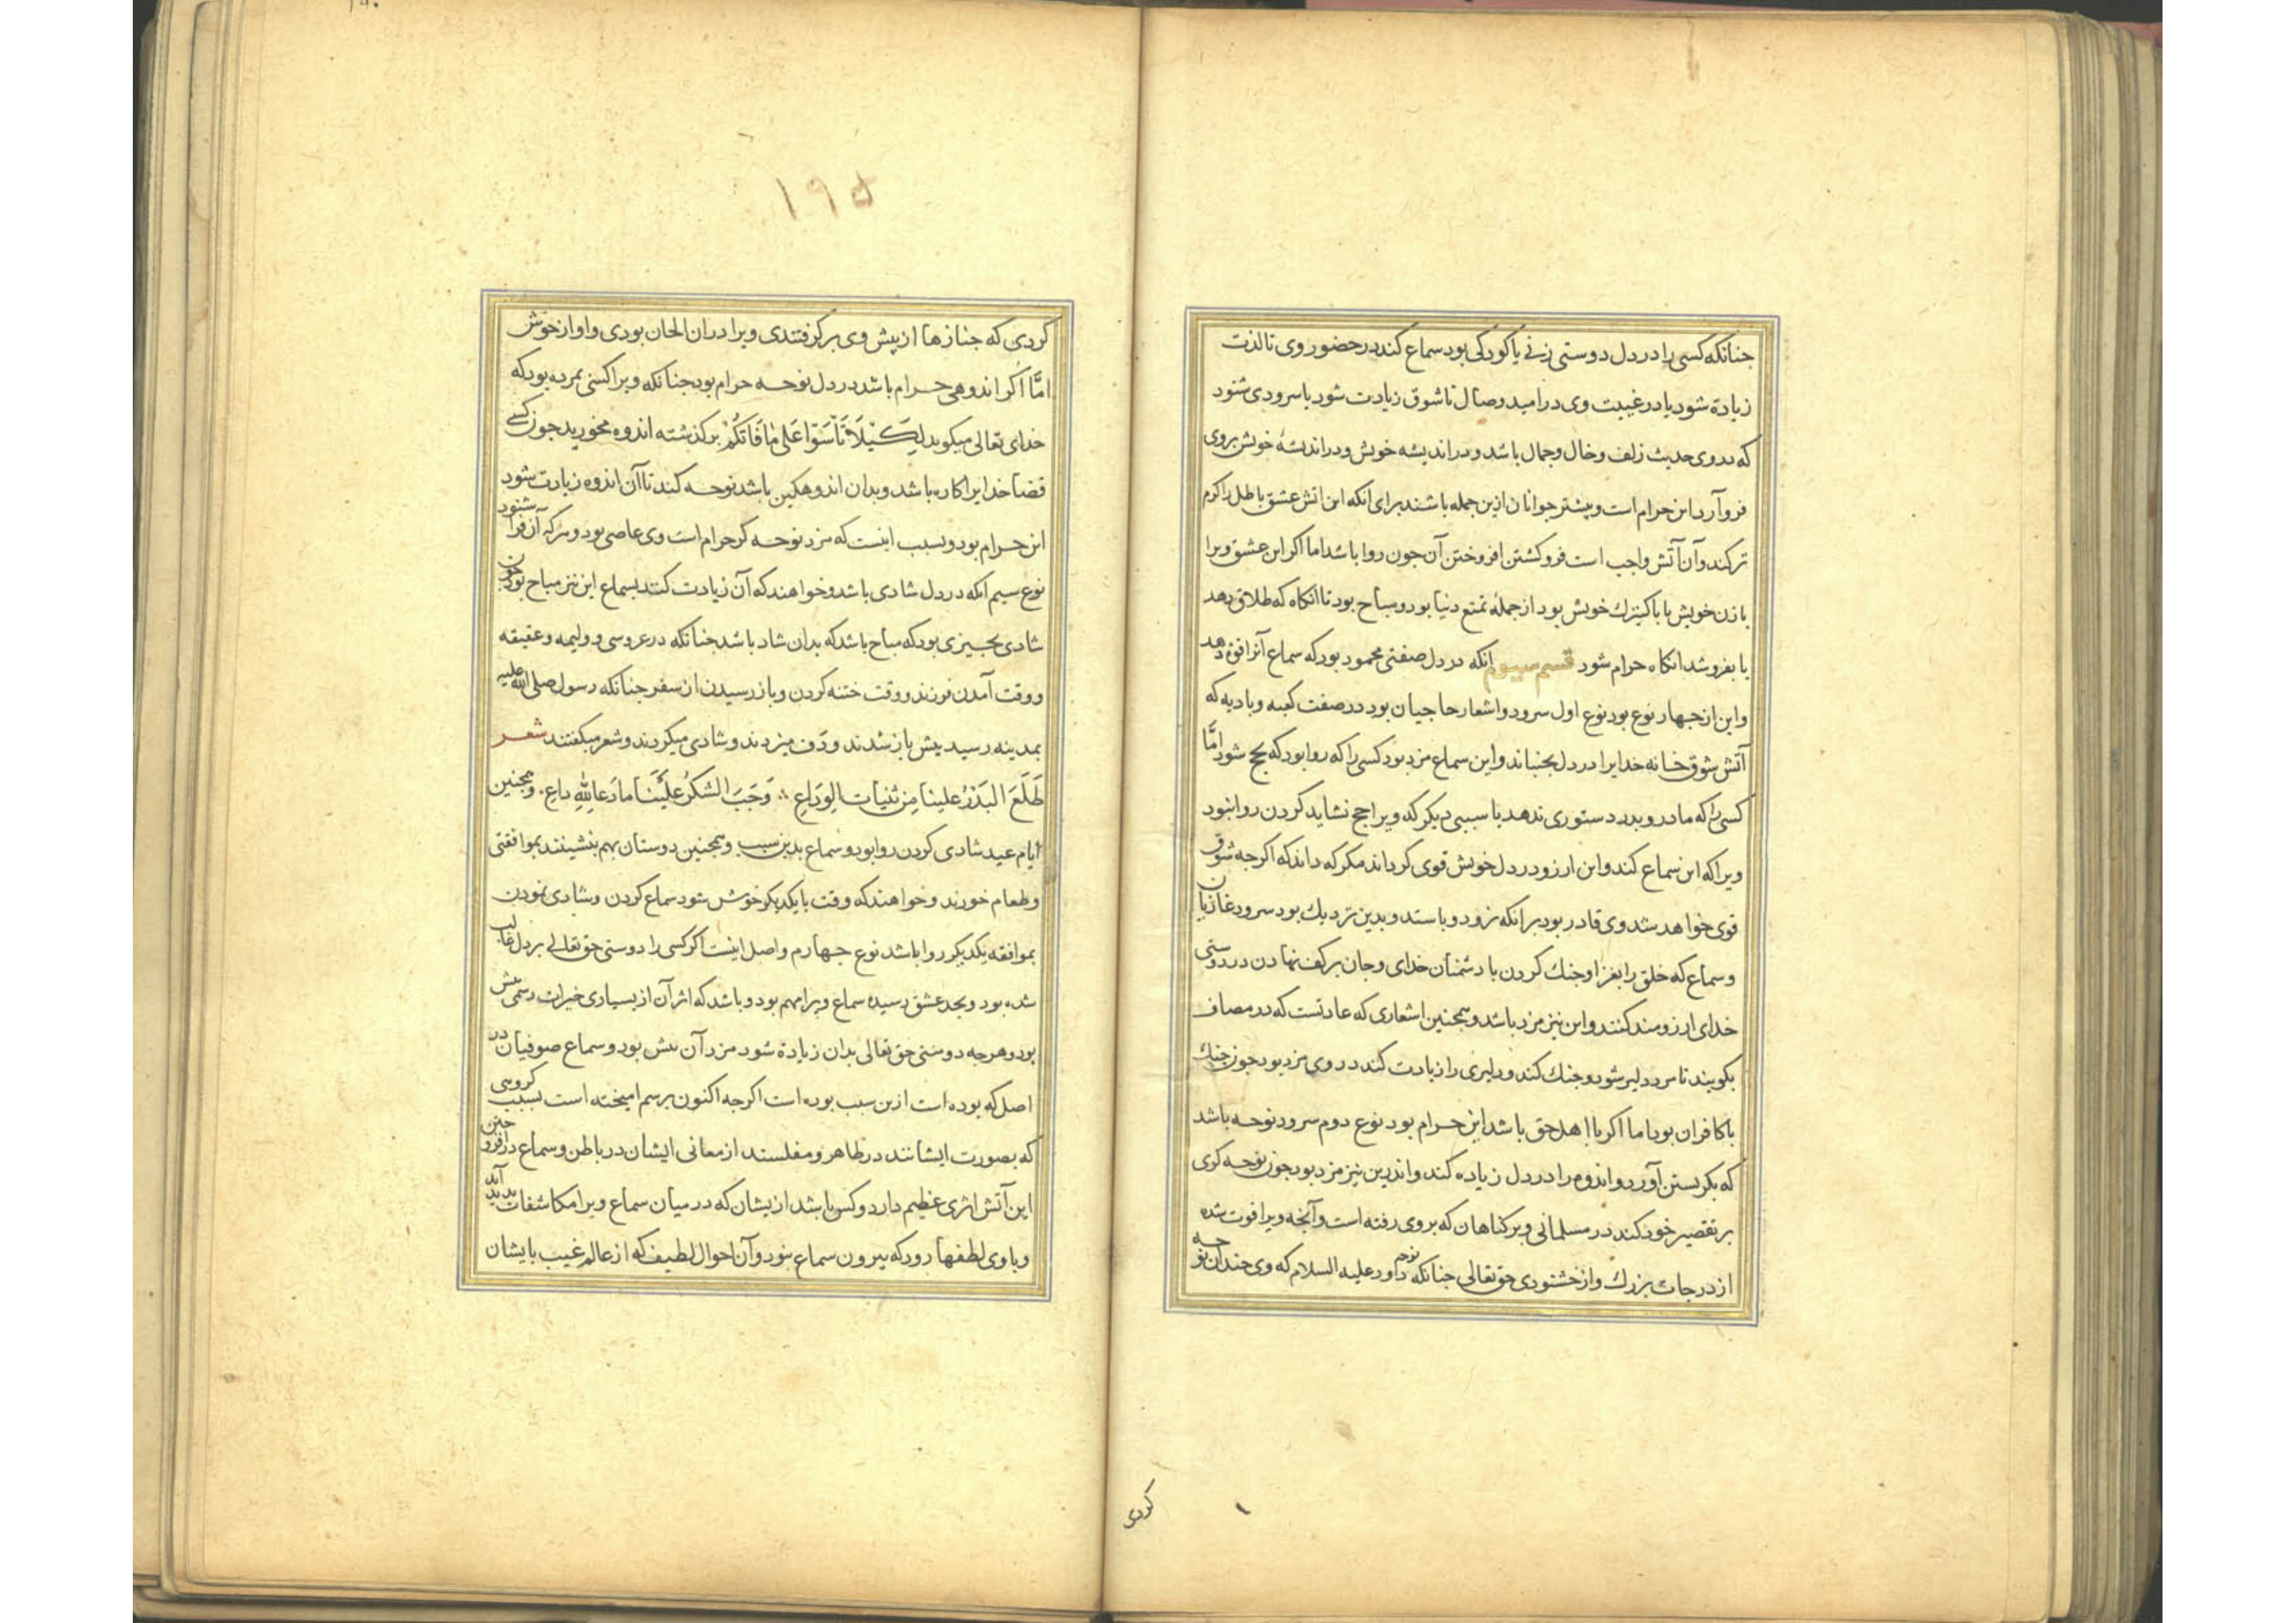 جنانکه کسی را در دل دوستی زنی یا کودکی بود سماع کند در حضور وی تا لذت
زیادة شود یا در غیبت وی در امید وصال تا شوق زیادت شود یا سرودی شنود
که دروی حدیث زلف و خال و جمال باشد و در اندیشه خویش و در اندیشهٔ خویش بروی
فرو آرد این حرام است و بیشتر جوانان ازین جمله باشند برای انکه این اتش عشق باطل را کرم
ترکند و آن آتش واجب است فروکشتن افروختن آن جون روا باشد اما اکر این عشق ویرا
با زن خویش یا با کنیزك خویش بود از جملهٔ تمتع دنیا بود و مباح بود تا انکاه که طلاق دهد
یا بفروشد انکاه حرام شود قسم سیوم انکه در دل صفتی محمود بود که سماع آنرا قوة دهد
و این از جهار نوع بود نوع اول سرود و اشعار حاجیان بود در صفت کعبه و بادیه که
آتش شوق خانه خدایرا در دل بجنباند و این سماع مزد بود کسی را که روا بود که بحج شود امّا
کسی را که مادر و بدر دستوری ندهد یا سببی دیکر که ویرا حج نشاید کردن روا نبود
ویرا که این سماع کند و این ارزو در دل خویش قوی کرداند مکر که داند که اکرجه شوق
قوی خواهد شد وی قادر بود برانکه نرود و باستد و بدین نزدیك بود سرود غازیان
و سماع که خلق را بغزا و جنك کردن با دشمنان خدای و جان بر کف نهادن در دوستی
خدای ارزومند کنند و این نیز مزد باشد و همجنین اشعاری که عادتست که در مصاف
بکویند تا مرد دلیر شود و جنك کند و دلیری را زیادت کند در وی مزد بود جون جنك
با کافران بود اما اکر با اهل حق باشد این حرام بود نوع دوم سرود نوحه باشد
که بکریستن آورد و اندوه را در دل زیاده کند و اندرین نیز مزد بود جون نوحه کری
بر تقصیر خود کند در مسلمانی و بر کناهان که بروی رفته است و آنجه ویرا فوت شده
از درجات بزرك و از خشنودی حق تعالی جنانکه نوحه داود علیه السلام که وی جندان نوحه
کردی
۱۹۵
کردی که جنازها از پیش وی بر کرفتندی ویرا دران الحان بودی و اواز خوش
امّا اکر اندوهی حرام باشد در دل نوحه حرام بود جنانکه ویرا کسی بمرده بود که
خدای تعالی میکوید لِکَیْلَا تَأْسَوْا عَلی مٰا فَاتَکُمْ بر کذشته اندوه مخورید جون کسی
قضاء خدایرا کاره باشد و بدان اندوهکین باشد نوحه کند تا آن اندوه زیادت شود
این حرام بود و بسبب اینست که مزد نوحه کر حرام است وی عاصی بود و هرکه آن فرا شنود
نوع سیم انکه در دل شادی باشد و خواهند که آن زیادت کنند بسماع این نیز مباح بود جون
شادی بجیزی بود که مباح باشد که بدان شاد باشد جنانکه در عروسی و ولیمه و عقیقه
و وقت آمدن فرزند و وقت ختنه کردن و باز رسیدن از سفر جنانکه رسول صلی الله علیه
بمدینه رسید پیش باز شدند و دَف میزدند و شادی میکردند و شعر میکفتند شعر
طَلَعَ البَدْرُ علینا مِن ثنیات الوِدَاعِ وَجَبَ الشکرُ عَلَیْنَا ما دَعا لِلّٰهِ داع . و همجنین
ایام عید شادی کردن روا بود و سماع بدین سبب و همجنین دوستان بهم بنشینند بموافقتی
و طعام خورند و خواهند که وقت با یکدیکر خوش شود سماع کردن و شادی نمودن
بموافقه یکدیکر روا باشد نوع جهارم و اصل اینست اکر کسی را دوستی حق تعالی بر دل غالب
شده بود و بحد عشق رسیده سماع ویرا مهم بود و باشد که اثر آن از بسیاری خیرات رسمی بیش
بود و هرجه دوستی حق تعالی بدان زیادة شود مزد آن بیش بود و سماع صوفیان در
اصل که بوده است ازین سبب بوده است اکرجه اکنون برسم امیخته است بسبب کروهی
که بصورت ایشانند در ظاهر و مفلسند از معانی ایشان در باطن و سماع در افروختن
این آتش اثری عظیم دارد و کس باشد ازیشان که در میان سماع ویرا مکاشفات بدید آید
و با وی لطفها رود که بیرون سماع نبود و آن احوال لطیف که از عالم غیب بایشان